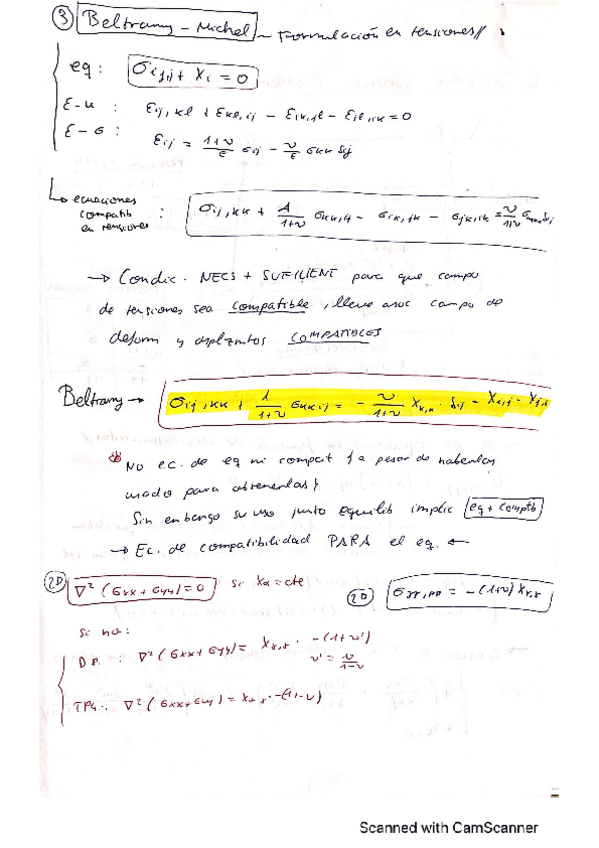 ③ Beltramy – Michel – Formulación en tensiones //
eq : σij,j + Xi = 0
ε-u : εij,kl + εkl,ij − εik,jl − εjl,ik = 0
ε-σ : εij = 1+ν/E σij − ν/E σkk δij
↳ ecuaciones
compatib
en tensiones : σij,kk + 1/1+ν σkk,ij − σik,jk − σjk,ik = ν/1+ν σmm,nn δij
→ Condic. NECS + SUFICIENT para que campo
de tensiones sea compatible, lleve asoc campo de
deform y desplzmtos COMPATIBLES
Beltramy → σij,kk + 1/1+ν σkk,ij = − ν/1+ν Xk,k · δij − Xi,j − Xj,i
No ec. de eq ni compat { a pesar de haberlas
usado para obtenerlas }
Sin embargo su uso junto equilib implic eq + comptb
→ Ec. de compatibilidad PARA el eq. ←
2D ∇² (σxx + σyy) = 0 si Xα = cte
2D σγγ,ρρ = −(1+ν) Xγ,γ
Si no:
D.P. : ∇² (σxx + σyy) = Xα,α · −(1+ν')
ν' = ν/1−ν
∇² (σxx + σyy) = Xα,α · −(1−ν)
Scanned with CamScanner